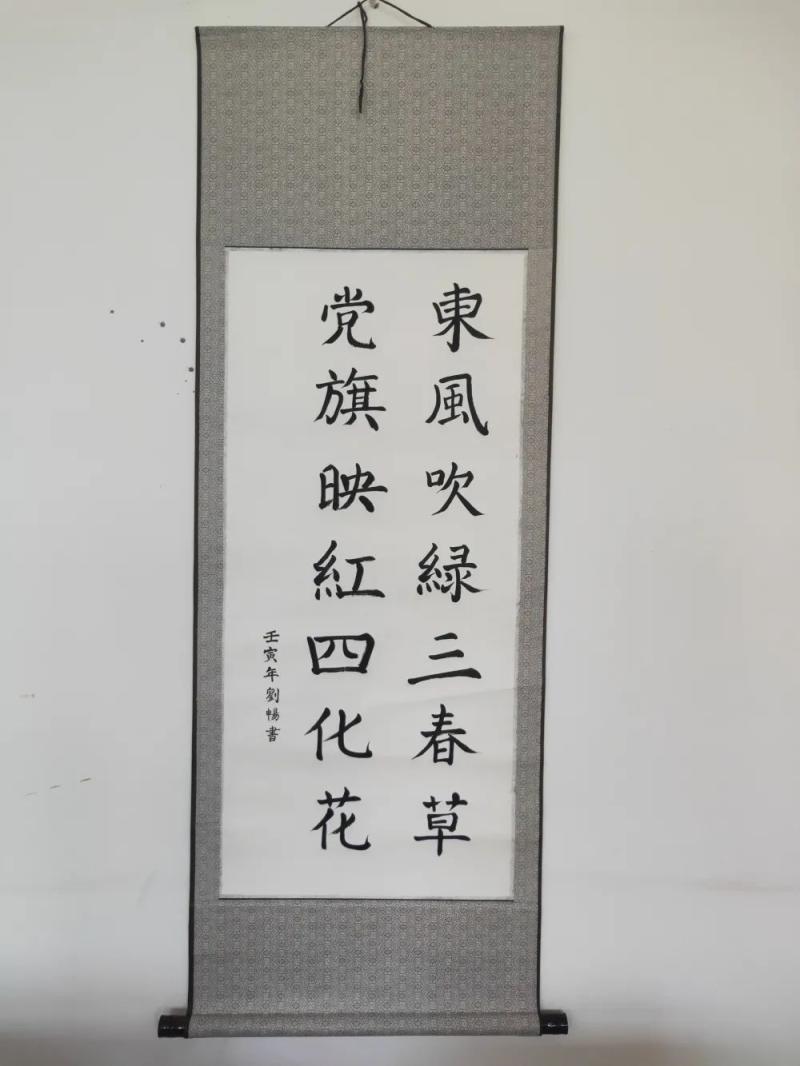 東風吹緑三春草
党旗映紅四化花
壬寅年劉暢書